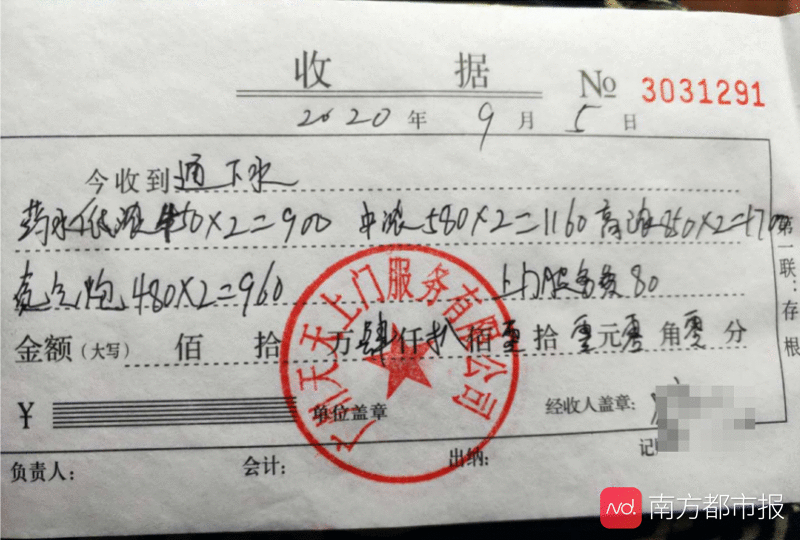 收 据 № 3031291
2020 年 9 月 5 日
今收到 通下水
药水低浓450×2=900 中浓580×2=1160 高浓850×2=1700
氮气炮480×2=960 上门服务费80
金额（大写） 佰 拾 万 肆 仟 扒 佰 零 拾 零 元 零 角 零 分
¥ 单位盖章 经收人盖章：
负责人： 会计： 出纳： 记
第一联：存根
广州天天上门服务有限公司
南方都市报